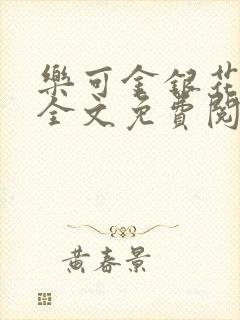 樂可金銀花
全文免費閱
黃春景